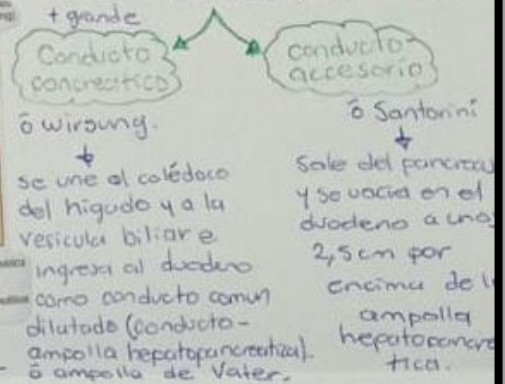 + grande
Conducto
pancreatico
ó Wirsung.
se une al colédoco
del higado y a la
vesicula biliar e
ingresa al duodeno
como conducto comun
dilatado (conducto-
ampolla hepatopancreatica).
ó ampolla de Vater.
conducto
accesorio
ó Santorini
Sale del pancrea
y se vacia en el
duodeno a uno
2,5 cm por
encima de l
ampolla
hepatopancre
tica.